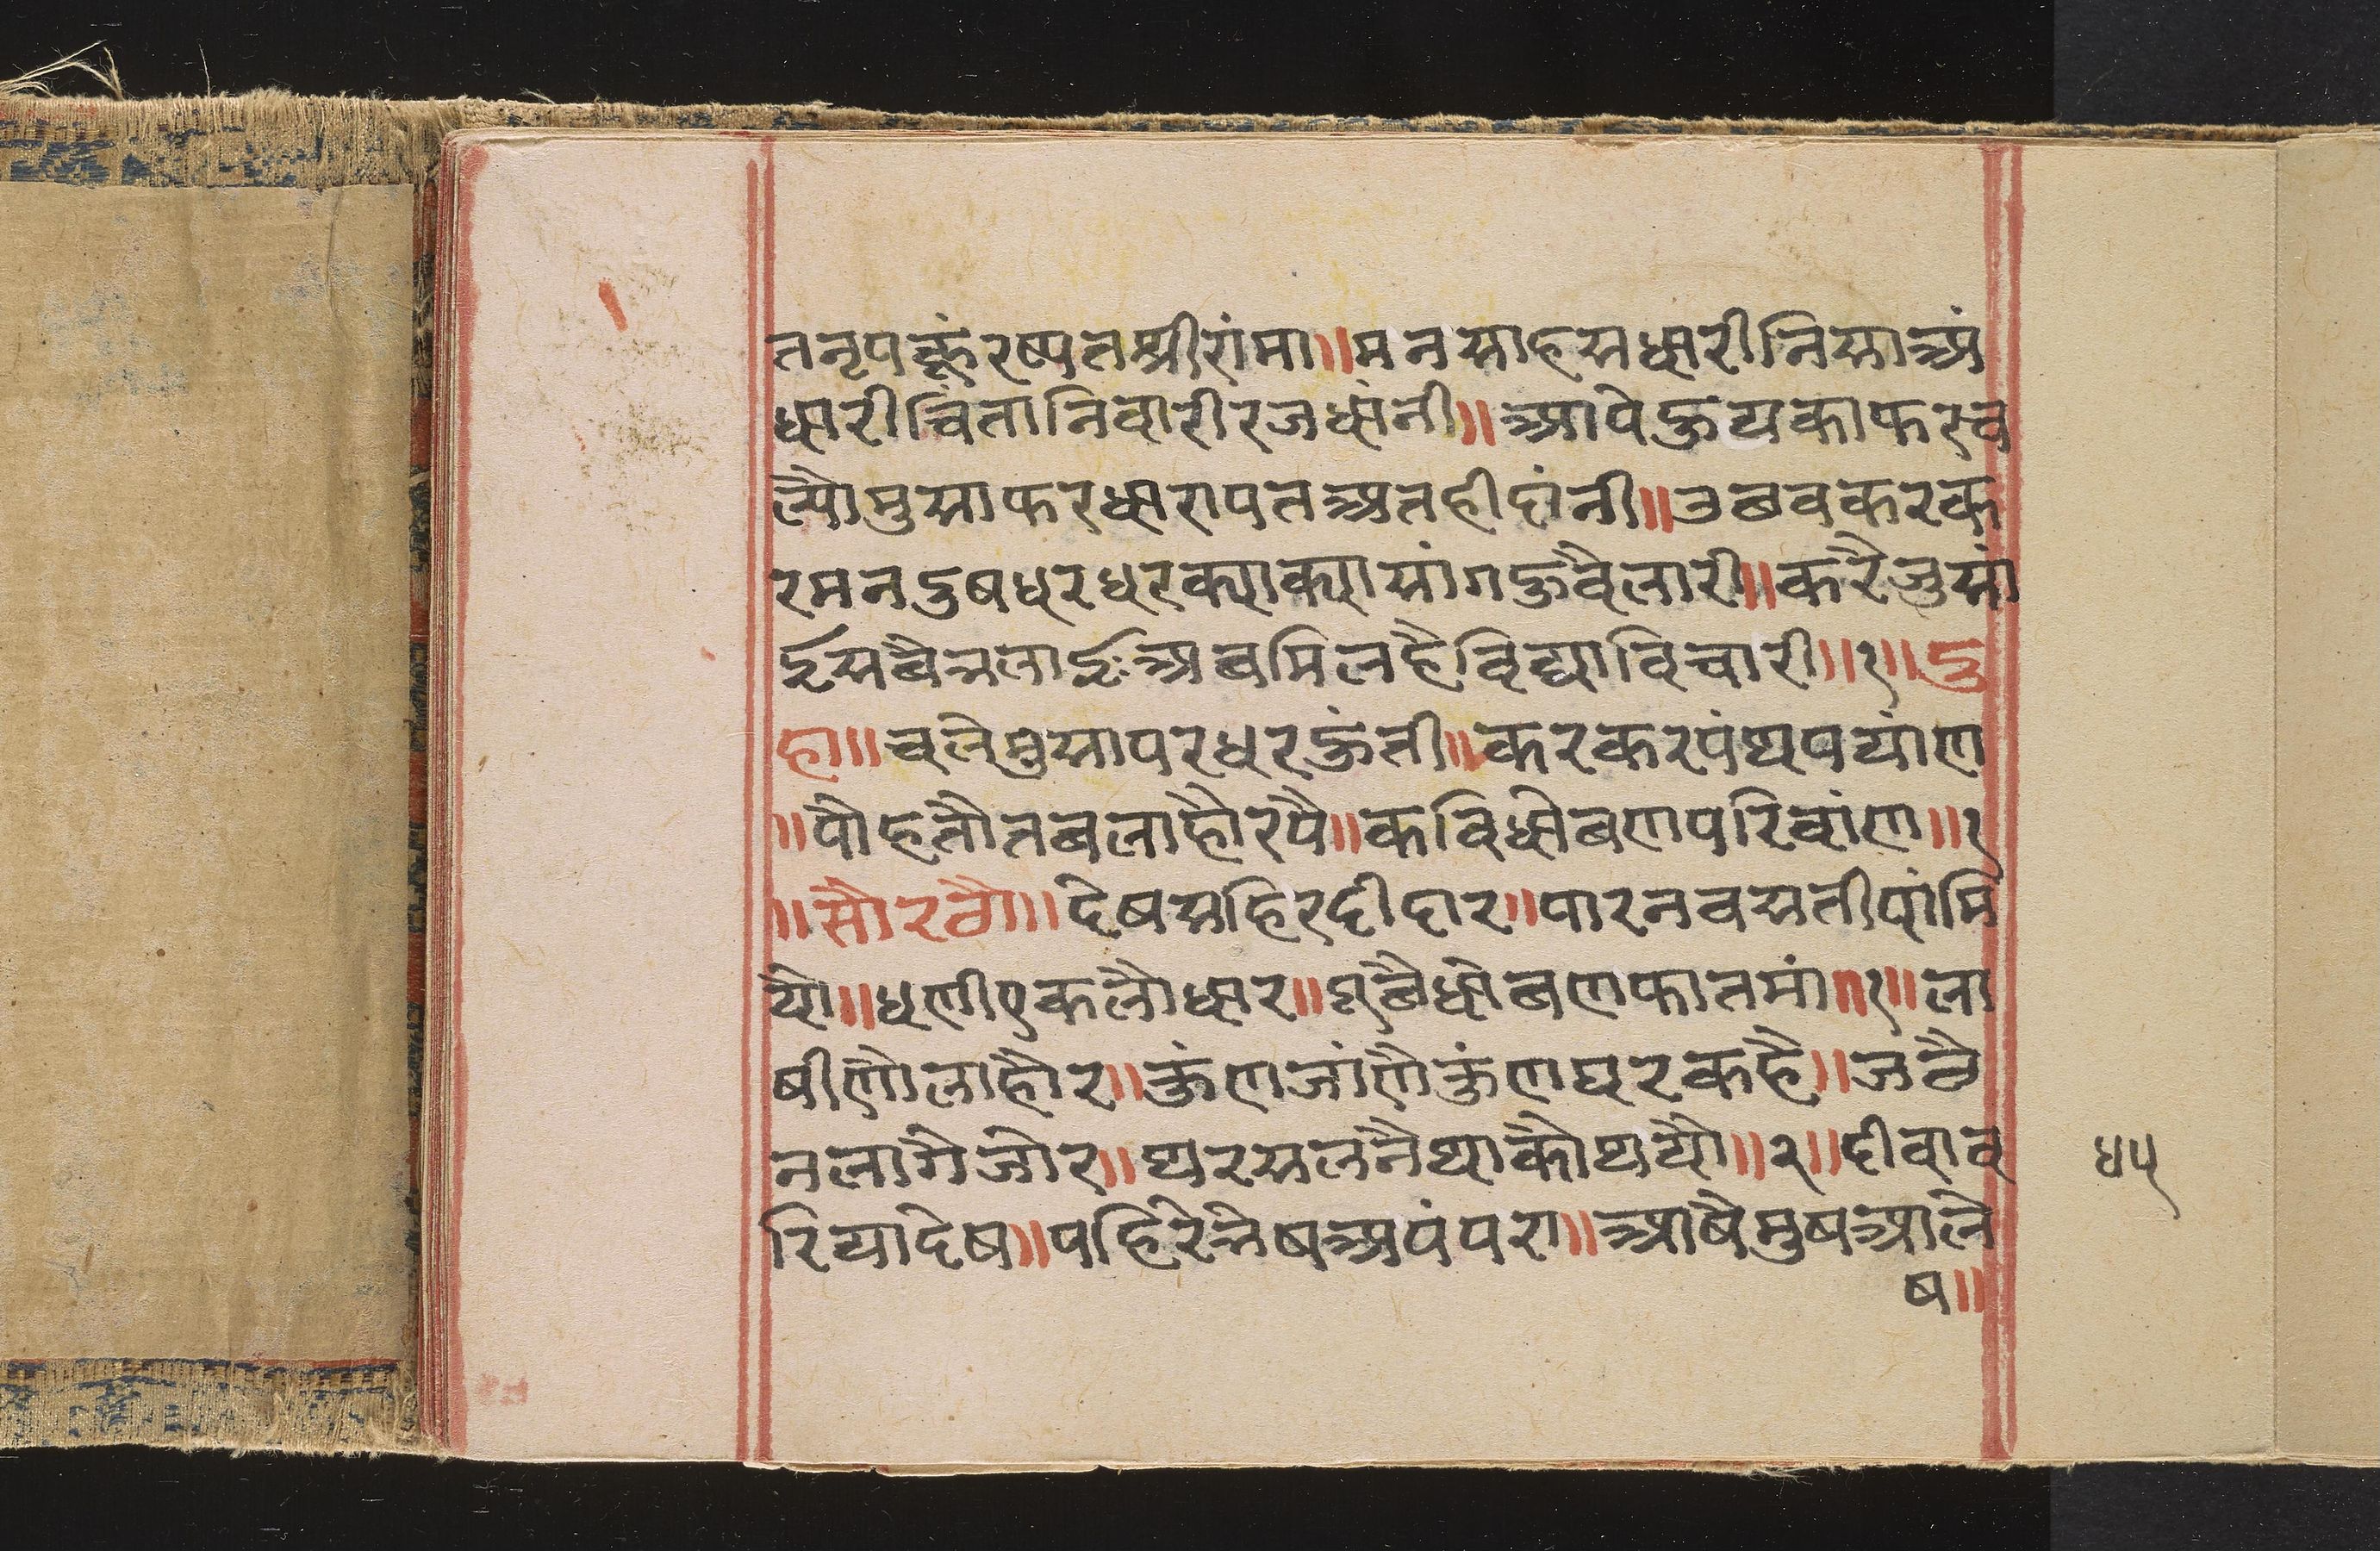 तनृपक्रूंरष्पतश्रीरांमा॥मनसाहसधारीनिसाअं
धारीचिंतानिवारीरजधांनी॥आपेऊयकाफरच
ल्यौमुसाफरधारापतअतहीदांनी॥उबवकरक
रमनदुषधरधरक्याक्यासांगऊवैलारी॥करैजुसां
ईसबैनलाईःअबमिलहैविद्याविचारी॥१॥दु
हा॥चलेमुसापरधरऊंती॥करकरपंथपयांण
॥पौहतौतबलाहौरपै॥कविधोबणपरिवांण॥१
॥सौरठौ॥देषसहिरदीदार॥पारनवसतीपांमि
यो॥धणीएकलौधार॥इबैधोबणफातमां॥१॥ला
षीणौलाहौर॥ऊंणजांणैऊंणघरकहै॥जठै
नलागेजोर॥थरसलनैथाकौथयौ॥२॥दीवाव
रियादेष॥पहिरेनेषअपंपरा॥आषैमुषआले
ष॥
४५